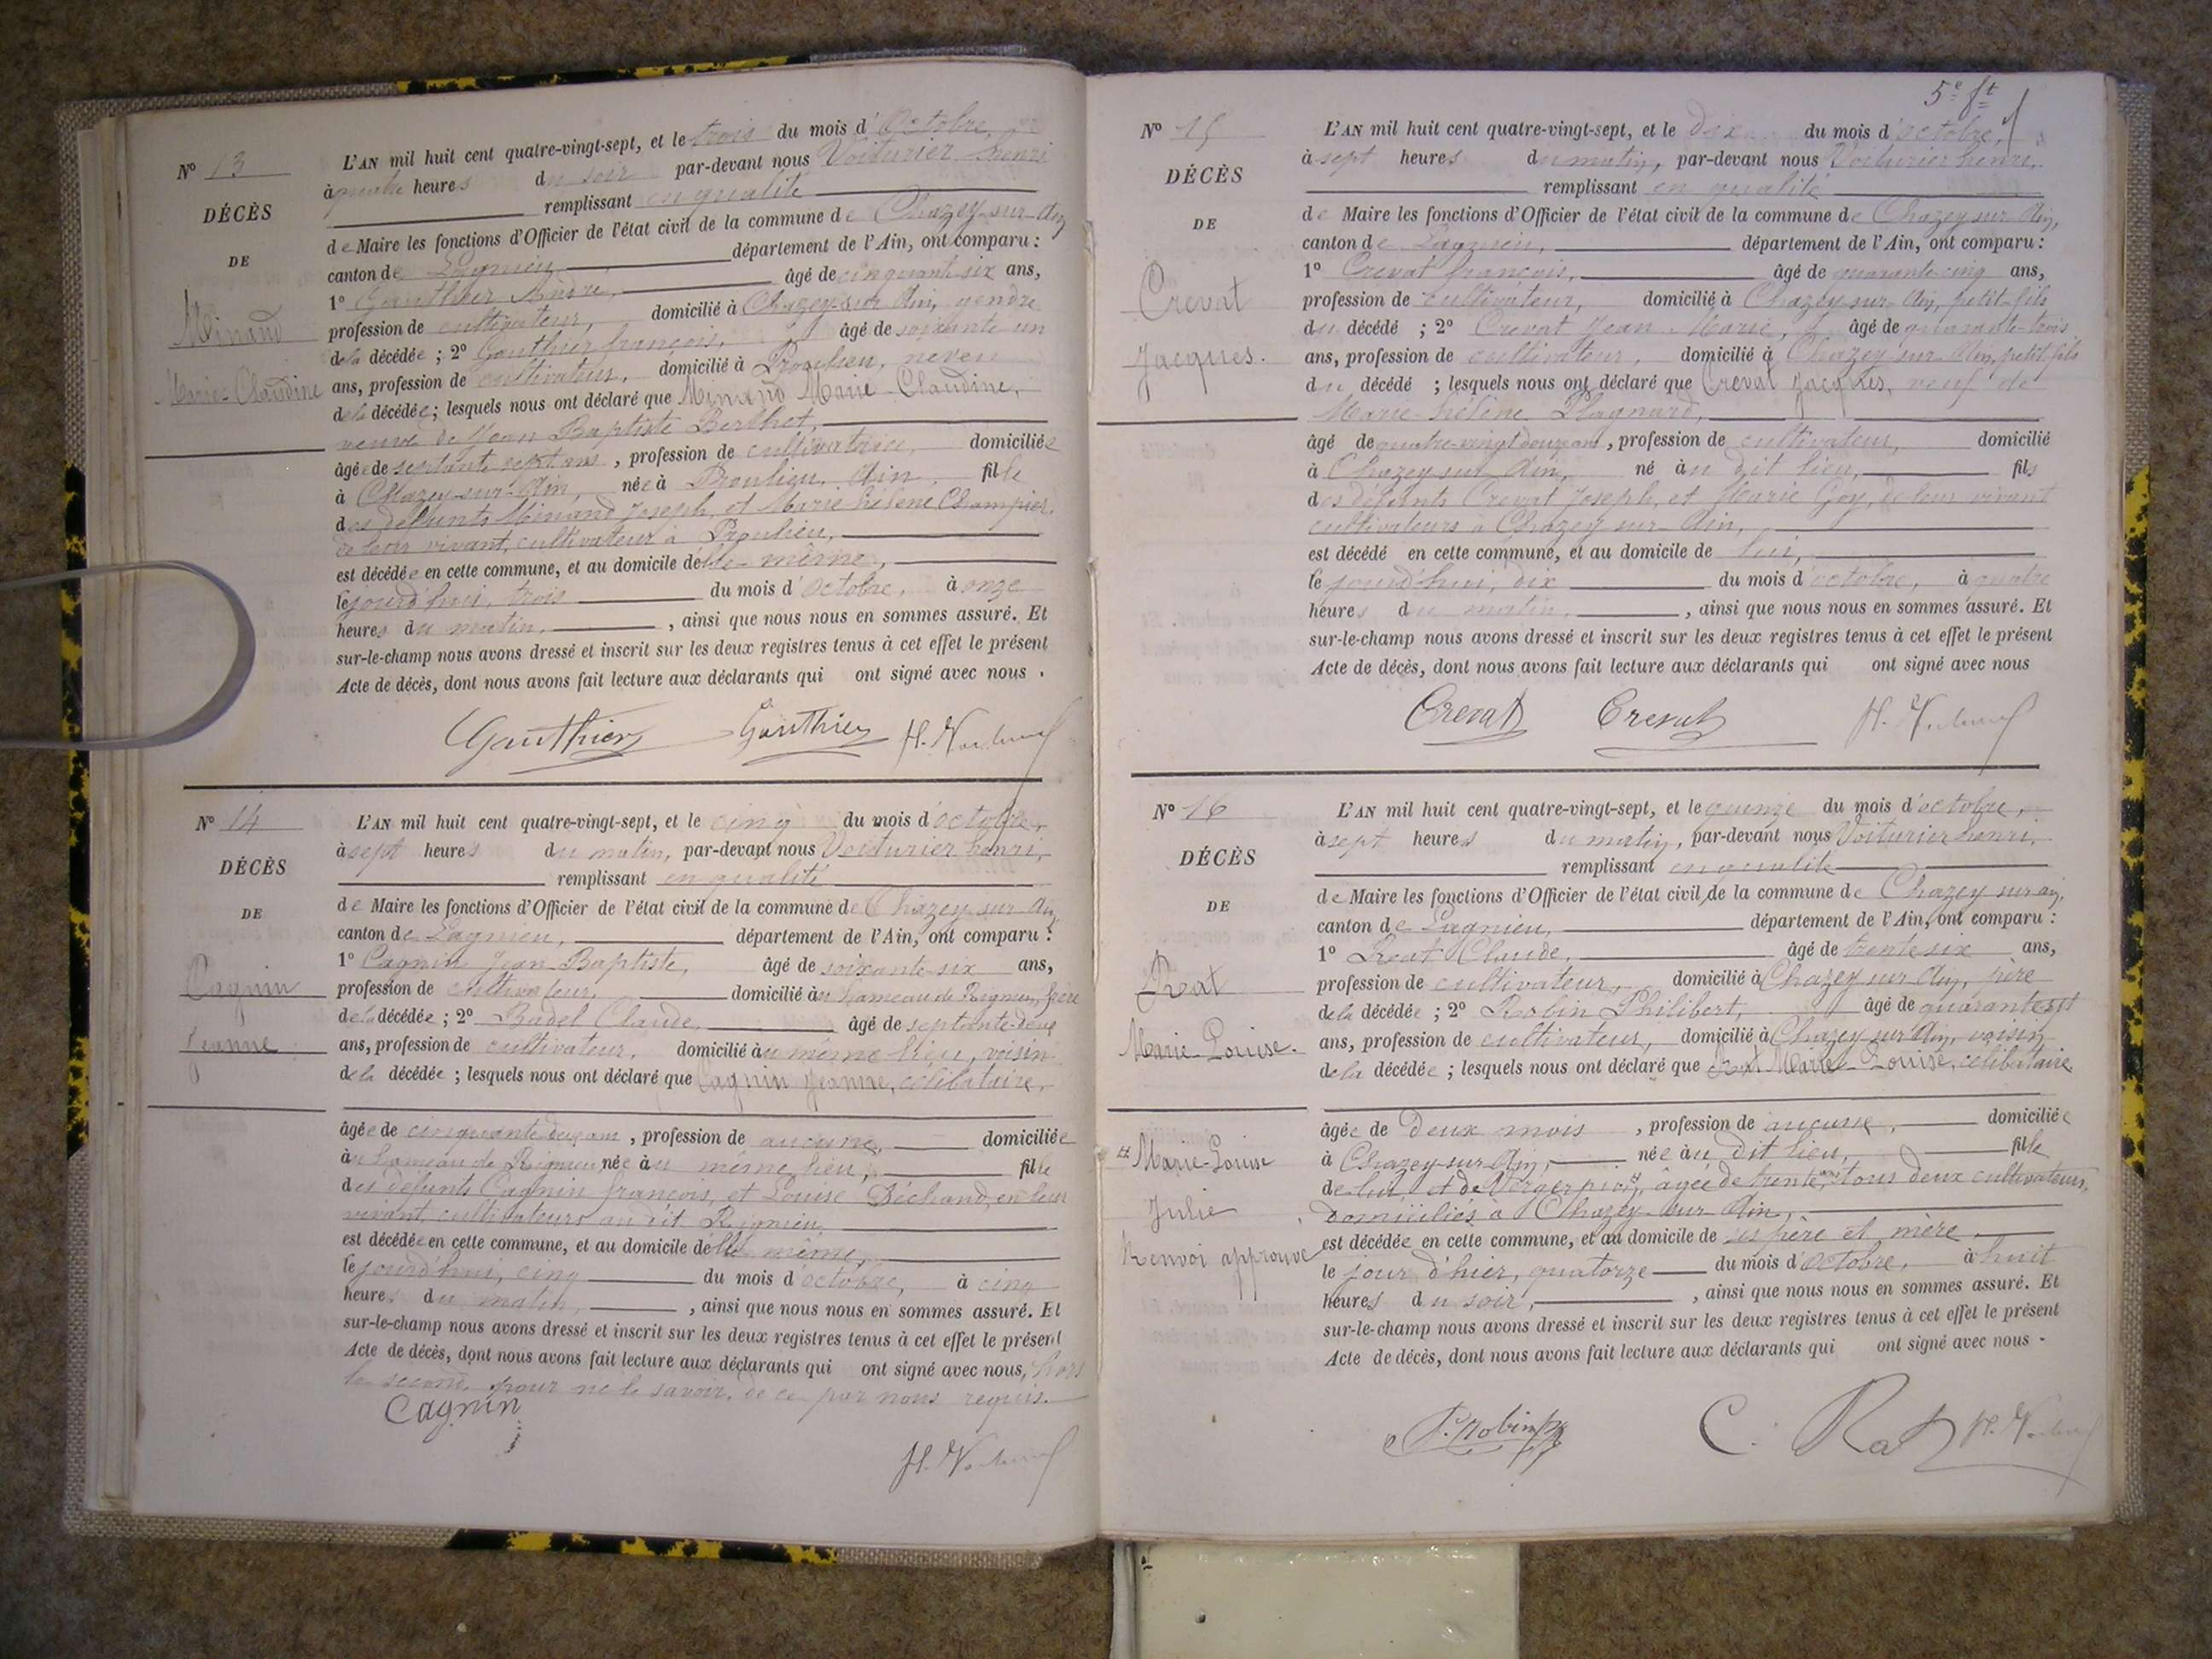 N° 13
DÉCÈS
DE
Minand
Marie-Claudine
L'AN mil huit cent quatre-vingt-sept, et le trois du mois d'Octobre,
à quatre heures du soir par-devant nous Voiturier henri
remplissant en qualité
de Maire les fonctions d'Officier de l'état civil de la commune de Chazey-sur-Ain
canton de Lagnieu, département de l'Ain, ont comparu :
1° Gauthier André, âgé de cinquante-six ans,
profession de cultivateur, domicilié à Chazey-sur-Ain, gendre
de la décédée ; 2° Gauthier françois, âgé de soixante un
ans, profession de cultivateur, domicilié à Proulieu, neveu
de la décédée ; lesquels nous ont déclaré que Minand Marie-Claudine,
veuve de Jean Baptiste Berthet,
âgée de septante sept ans, profession de cultivatrice, domiciliée
à Chazey-sur-Ain, née à Proulieu, Ain, fille
des défunts Minand Joseph, et Marie hélène Champier,
de leur vivant, cultivateur à Proulieu,
est décédée en cette commune, et au domicile d'elle-même,
le jourd'hui, trois du mois d'octobre, à onze
heures du matin, , ainsi que nous nous en sommes assuré. Et
sur-le-champ nous avons dressé et inscrit sur les deux registres tenus à cet effet le présent
Acte de décès, dont nous avons fait lecture aux déclarants qui ont signé avec nous .
Gauthier Gauthier H. Voiturier
N° 14
DÉCÈS
DE
Cagnin
Jeanne
L'AN mil huit cent quatre-vingt-sept, et le cinq du mois d'octobre,
à sept heures du matin, par-devant nous Voiturier henri,
remplissant en qualité
de Maire les fonctions d'Officier de l'état civil de la commune de Chazey-sur-Ain,
canton de Lagnieu, département de l'Ain, ont comparu :
1° Cagnin Jean Baptiste, âgé de soixante-six ans,
profession de cultivateur, domicilié au hameau de Rignieu, frère
de la décédée ; 2° Badel Claude, âgé de septante-deux
ans, profession de cultivateur, domicilié au même lieu, voisin
de la décédée ; lesquels nous ont déclaré que Cagnin Jeanne, célibataire,
âgée de cinquante-deux ans, profession de aucune, domiciliée
au hameau de Rignieu née au même lieu, fille
des défunts Cagnin françois, et Louise Béchand, en leur
vivant, cultivateurs au dit Rignieu,
est décédée en cette commune, et au domicile d'elle même,
le jourd'hui, cinq du mois d'octobre, à cinq
heures du matin, , ainsi que nous nous en sommes assuré. Et
sur-le-champ nous avons dressé et inscrit sur les deux registres tenus à cet effet le présent
Acte de décès, dont nous avons fait lecture aux déclarants qui ont signé avec nous, hors
le second, pour ne le savoir, de ce par nous requis.
Cagnin
H. Voiturier
5e ft
N° 15
DÉCÈS
DE
Crevat
Jacques.
L'AN mil huit cent quatre-vingt-sept, et le dix du mois d'octobre,
à sept heures du matin, par-devant nous Voiturier henri,
remplissant en qualité
de Maire les fonctions d'Officier de l'état civil de la commune de Chazey sur Ain,
canton de Lagnieu, département de l'Ain, ont comparu :
1° Crevat françois, âgé de quarante-cinq ans,
profession de cultivateur, domicilié à Chazey-sur-Ain, petit-fils
du décédé ; 2° Crevat Jean Marie, âgé de quarante-trois
ans, profession de cultivateur, domicilié à Chazey-sur-Ain, petit fils
du décédé ; lesquels nous ont déclaré que Crevat Jacques, veuf de
Marie-hélène Plagnard,
âgé de quatre-vingt douze ans, profession de cultivateur, domicilié
à Chazey sur Ain, né au dit lieu, fils
des défunts Crevat Joseph, et Marie Goy, de leur vivant
cultivateurs à Chazey sur-Ain,
est décédé en cette commune, et au domicile de lui,
le jourd'hui, dix du mois d'octobre, à quatre
heures du matin, , ainsi que nous nous en sommes assuré. Et
sur-le-champ nous avons dressé et inscrit sur les deux registres tenus à cet effet le présent
Acte de décès, dont nous avons fait lecture aux déclarants qui ont signé avec nous
Crevat Crevat H. Voiturier
N° 16
DÉCÈS
DE
Rat
Marie-Louise.
Marie-Louise
Julie
Renvoi approuvé
L'AN mil huit cent quatre-vingt-sept, et le quinze du mois d'octobre,
à sept heures du matin, par-devant nous Voiturier henri,
remplissant en qualité
de Maire les fonctions d'Officier de l'état civil de la commune de Chazey sur ain,
canton de Lagnieu, département de l'Ain, ont comparu :
1° Rat Claude, âgé de trente six ans,
profession de cultivateur, domicilié à Chazey sur Ain, père
de la décédée ; 2° Robin Philibert, âgé de quarante sept
ans, profession de cultivateur, domicilié à Chazey sur Ain, voisin
de la décédée ; lesquels nous ont déclaré que Rat Marie Louise, célibataire
âgée de deux mois, profession de aucune, domiciliée
à Chazey-sur-Ain, née au dit lieu, fille
de lui et de Verger, âgée de trente ans, tous deux cultivateurs,
domiciliés à Chazey-sur-Ain,
est décédée en cette commune, et au domicile de ses père et mère
le jour d'hier, quatorze du mois d'Octobre, à huit
heures du soir, , ainsi que nous nous en sommes assuré. Et
sur-le-champ nous avons dressé et inscrit sur les deux registres tenus à cet effet le présent
Acte de décès, dont nous avons fait lecture aux déclarants qui ont signé avec nous .
P. Robin C. Rat H. Voiturier